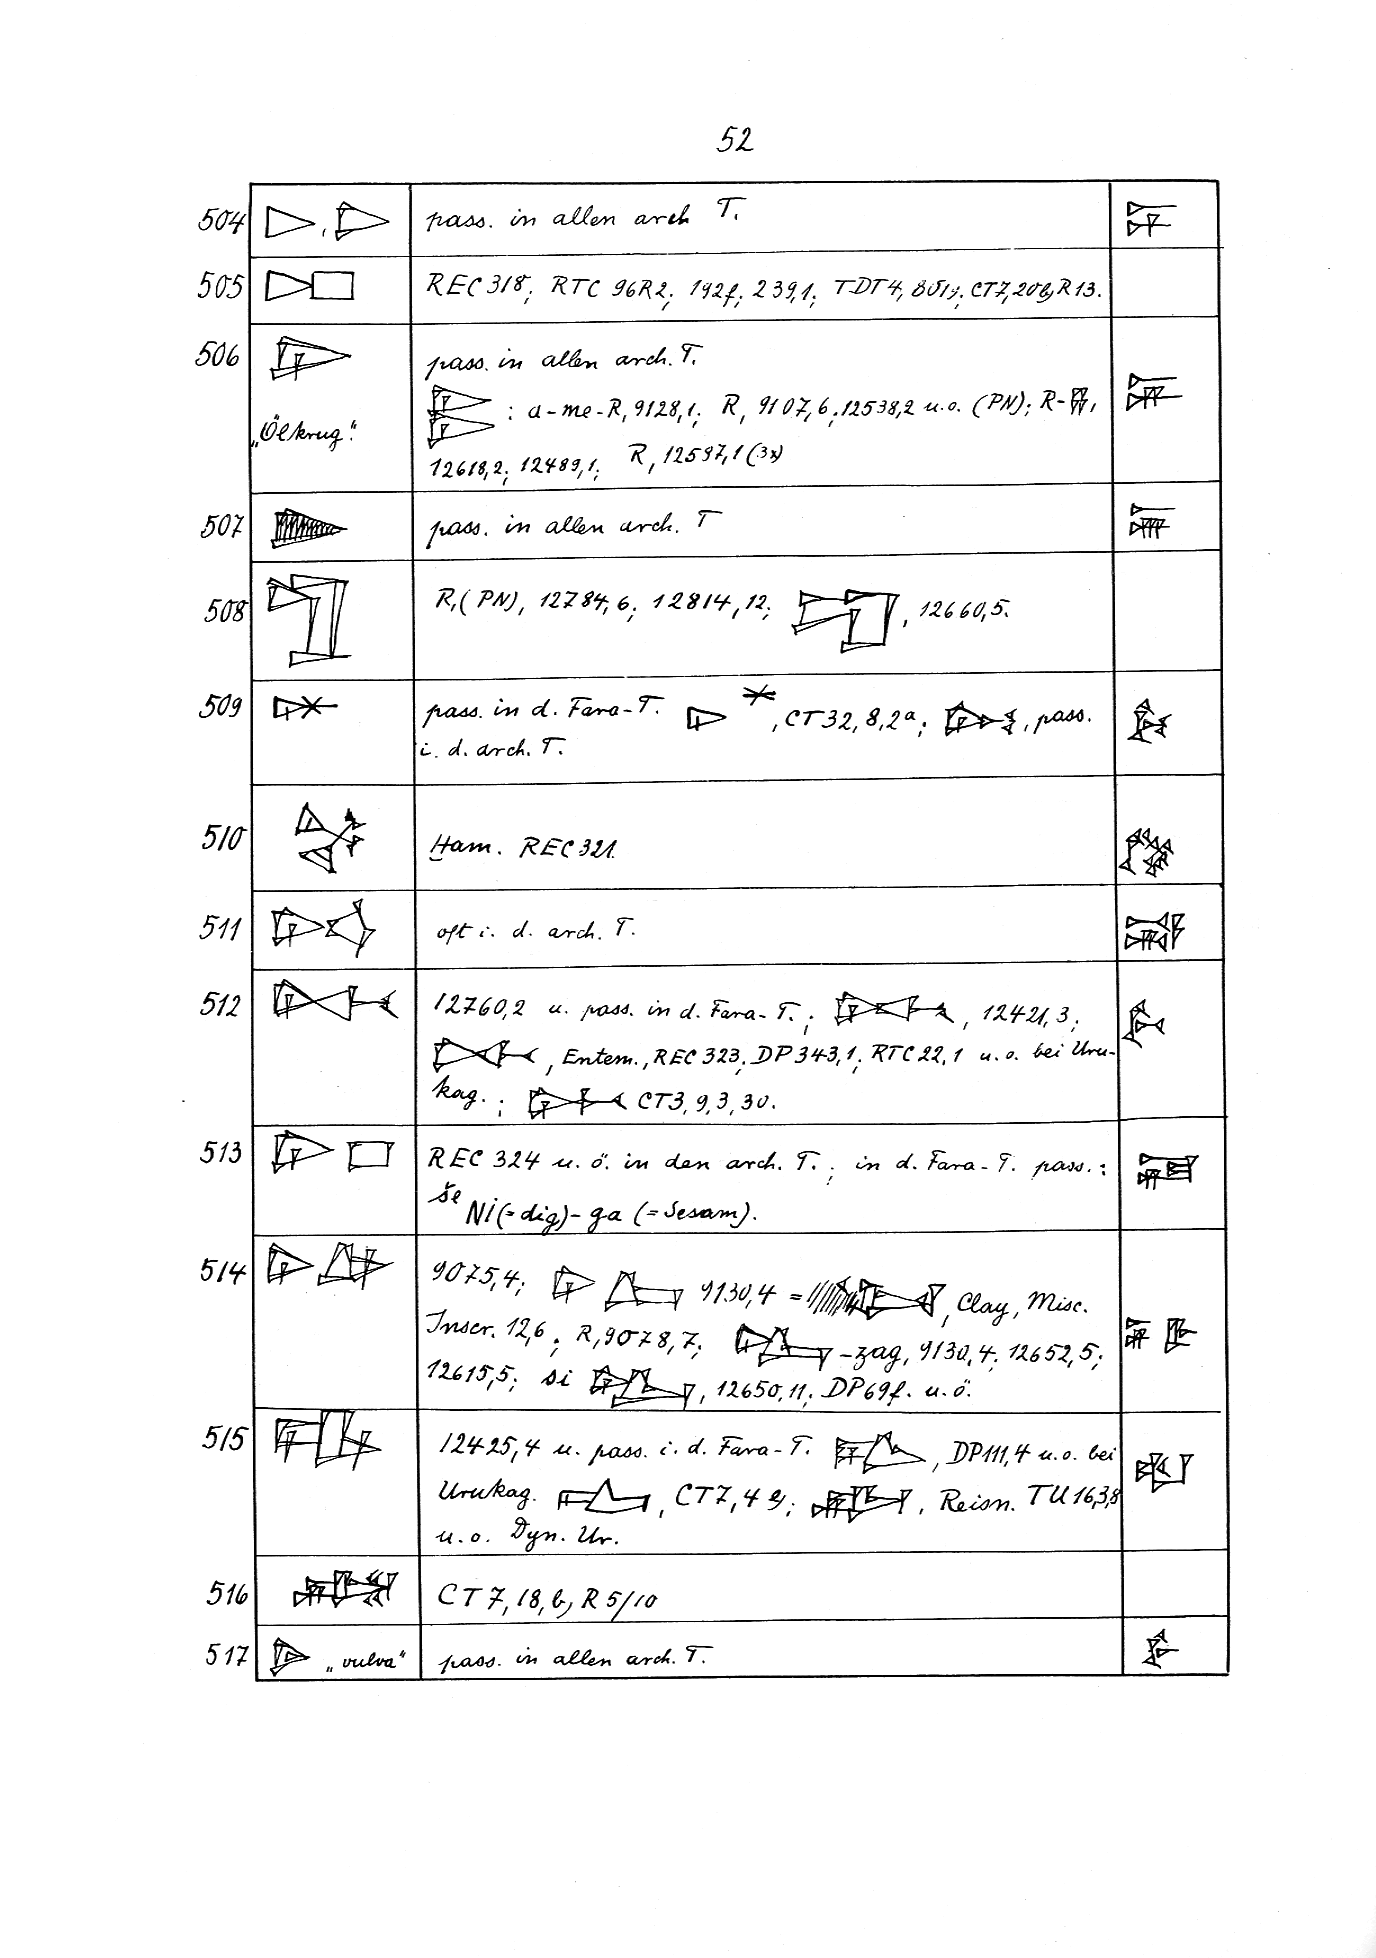 52
504 pass. in allen arch T.
505 REC 318; RTC 96 R2; 192f; 239,1; TDT 4, CT7, 20b, R 13.
506 pass. in allen arch. T.
"Ölkrug." : a-me-R, 9128,1; R, 9107,6; 12538,2 u.o. (PN); R-
12618,2; 12489,1; R, 12597,1 (3x)
507 pass. in allen arch. T
508 R, (PN), 12784,6; 12814,12; , 12660,5.
509 pass. in d. Fara-T. , CT 32, 8, 2a; , pass.
i. d. arch. T.
510 Ham. REC 321.
511 oft i. d. arch. T.
512 12760,2 u. pass. in d. Fara-T.; , 12421,3;
, Entem., REC 323; DP 343,1; RTC 22,1 u.o. bei Uru-
kag.; CT3, 9, 3, 30.
513 REC 324 u. ö. in den arch. T.; in d. Fara-T. pass.:
še Ni(=dig)-ga (=Sesam).
514 9075,4; 9130,4 = , Clay, Misc.
Inscr. 12,6; R, 9078,7; -zag, 9130,4; 12652,5;
12615,5; si , 12650,11; DP 69f. u. ö.
515 12425,4 u. pass. i. d. Fara-T. , DP 111,4 u.o. bei
Urukag. , CT 7, 4 ; , Reisn. TU 16,3,8
u.o. Dyn. Ur.
516 CT 7, 18, b, R 5/10
517 "vulva" pass. in allen arch. T.